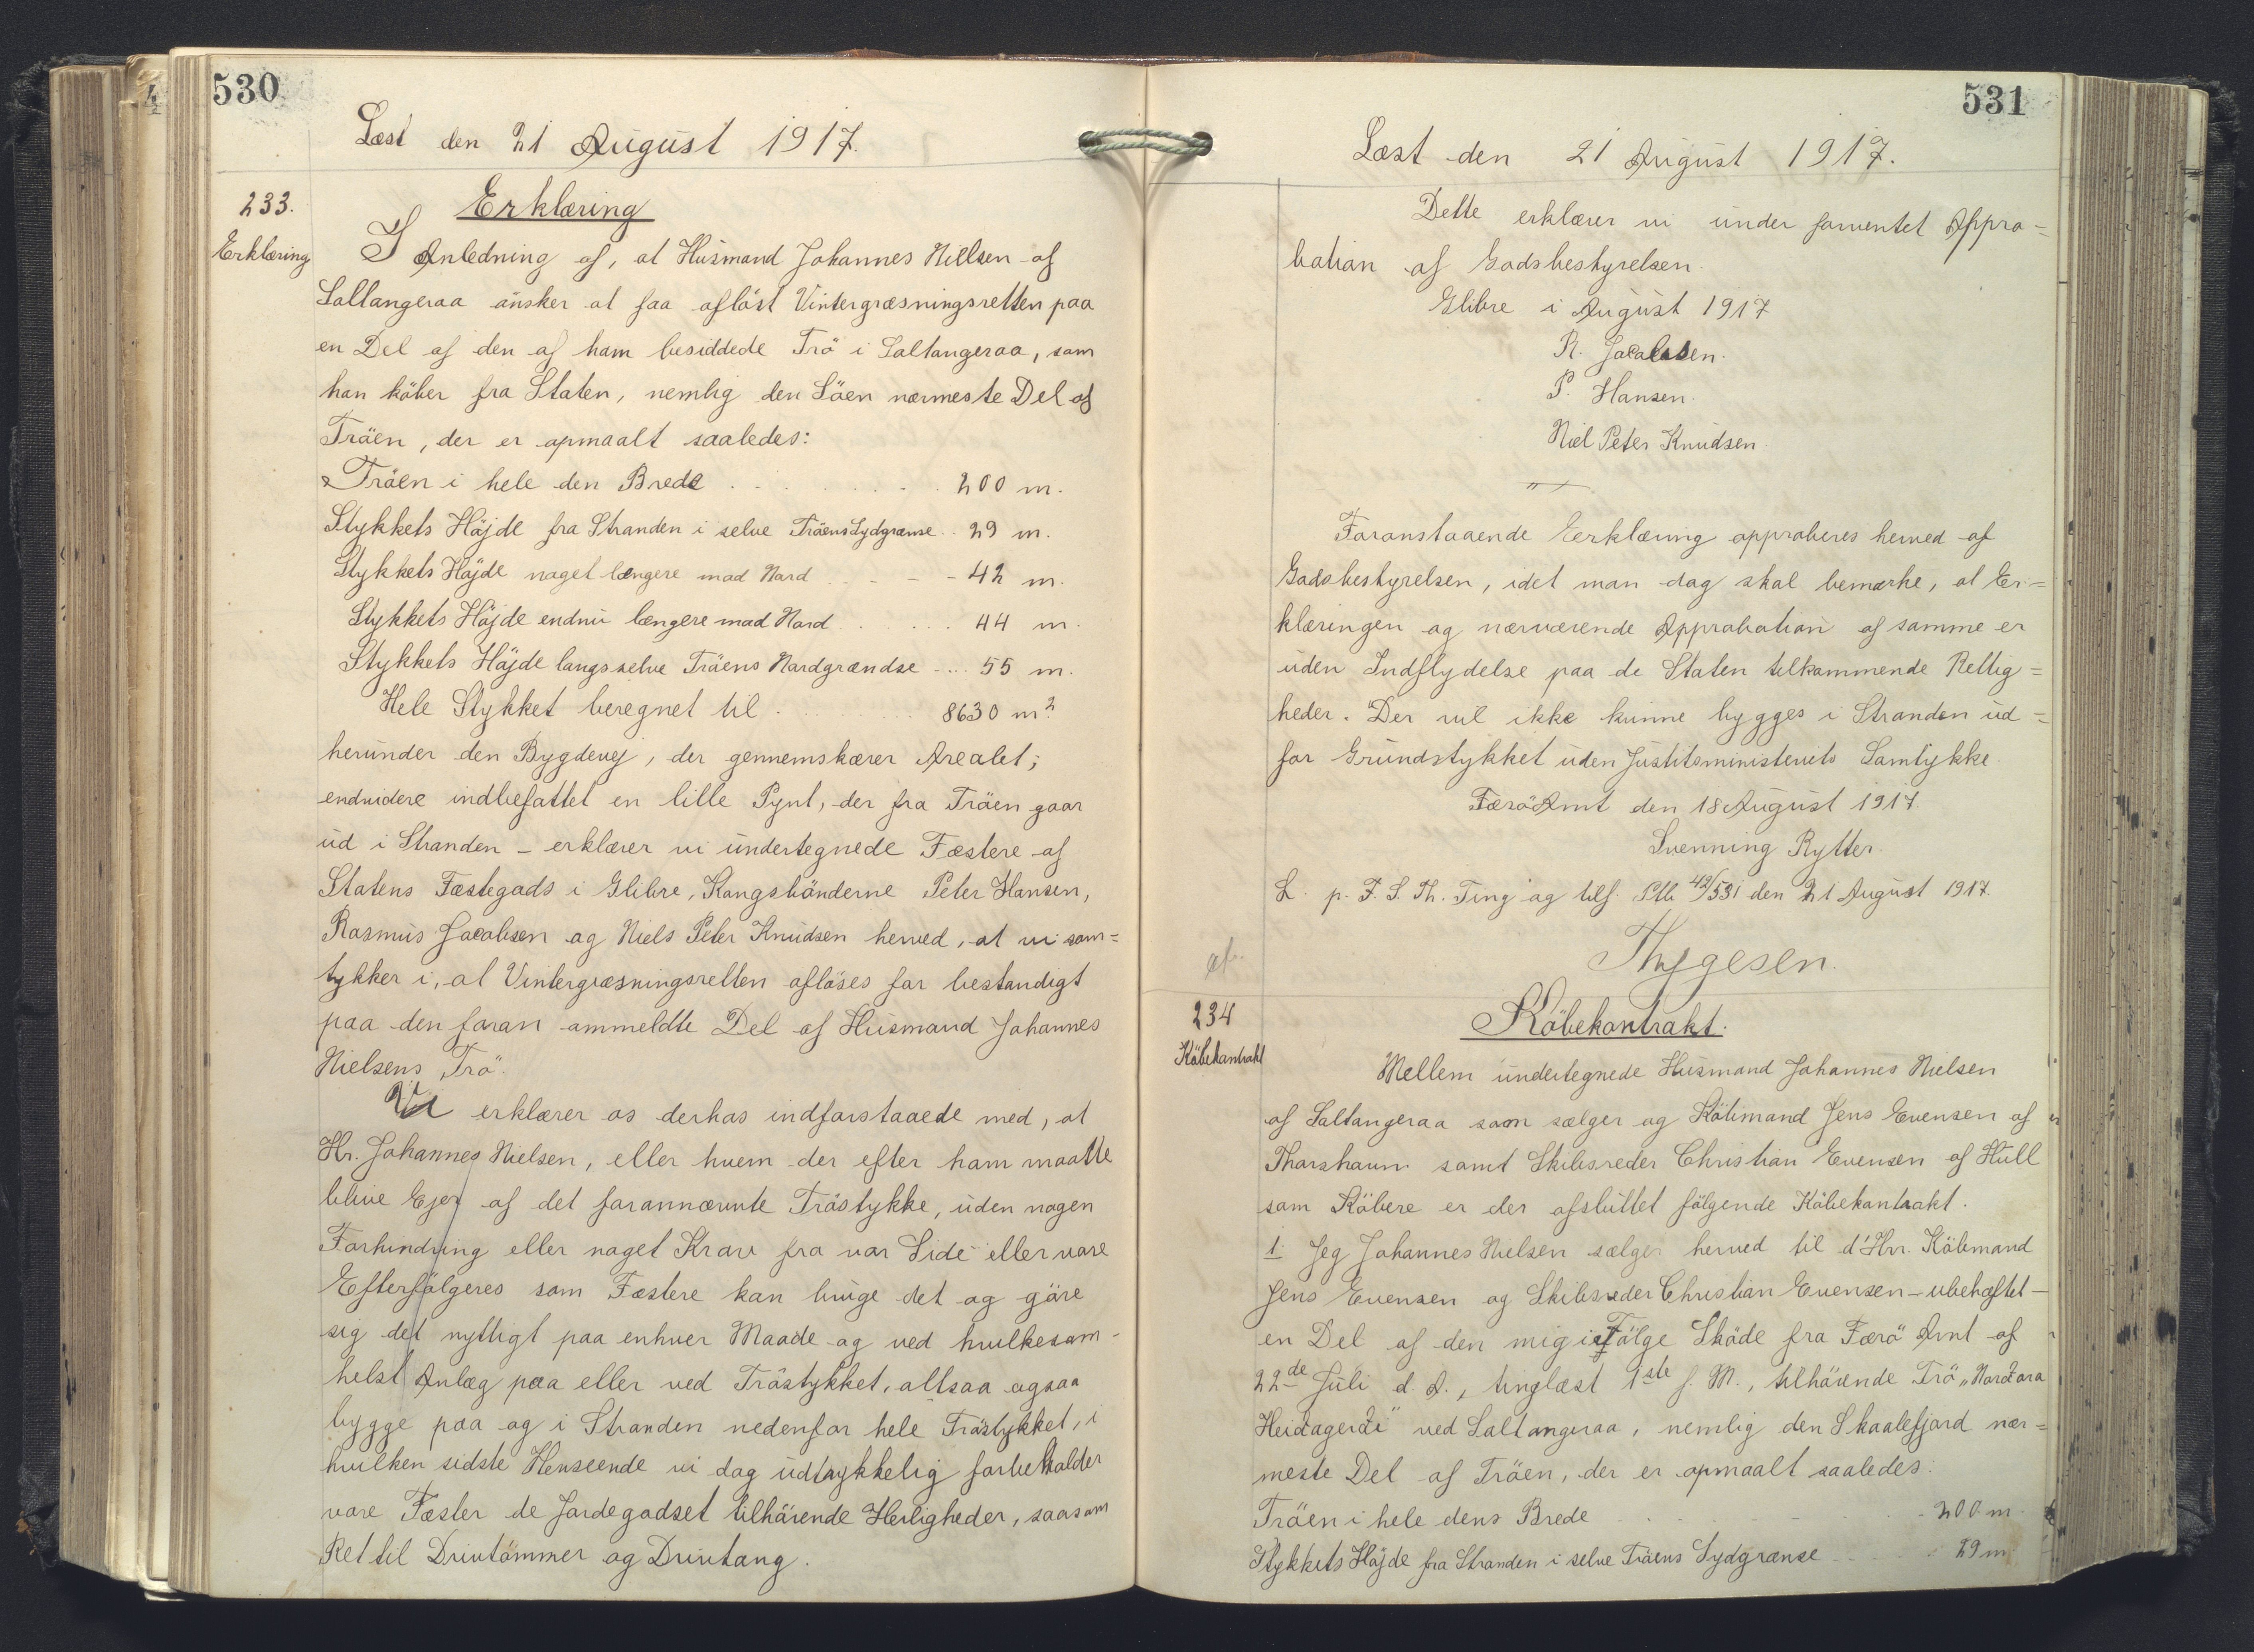 530
Læst den 21 August 1917.
233.
Erklæring
Erklæring
I Anledning af, at Husmand Johannes Nielsen af
Saltangeraa ønsker at faa afløst Vintergræsningsretten paa
en Del af den af ham besiddede Trö i Saltangeraa, som
han köber fra Staten, nemlig den Söen nærmeste Del af
Tröen, der er opmaalt saaledes:
Tröen i hele den Brede . . . 200 m.
Stykkets Höjde fra Stranden i selve Tröens Sydgrænse . . 29 m.
Stykkets Höjde noget længere mod Nord . . . 42 m.
Stykkets Höjde endnu længere mod Nord . . . 44 m.
Stykkets Höjde langs selve Tröens Nordgrændse . . . 55 m.
Hele Stykket beregnet til . . . 8630 m²
herunder den Bygdevej, der gennemskærer Arealet;
endvidere indbefattet en lille Pynt, der fra Tröen gaar
ud i Stranden - erklærer vi undertegnede Fæstere af
Statens Fæstegods i Glibre, Kongsbönderne Peter Hansen,
Rasmus Jacobsen og Niels Peter Knudsen herved, at vi sam=
tykker i, at Vintergræsningsretten aflöses for bestandigt
paa den foran ommeldte Del af Husmand Johannes
Nielsens Trö.
Vi erklærer os derhos indforstaaede med, at
Hr. Johannes Nielsen, eller hvem der efter ham maatte
blive Ejer af det forannævnte Tröstykke, uden nogen
Forhindring eller noget Krav fra vor Side eller vore
Efterfölgeres som Fæstere kan bruge det og göre
sig det nyttigt paa enhver Maade og ved hvilkesom-
helst Anlæg paa eller ved Tröstykket, altsaa ogsaa
bygge paa og i Stranden nedenfor hele Tröstykket, i
hvilken sidste Henseende vi dog udtrykkelig forbeholder
vore Fæster de Jordegodset tilhörende Herligheder, saasom
Ret til Drivtömmer og Drivtang.
531
Læst den 21 August 1917.
Dette erklærer vi under forventet Appro=
bation af Godsbestyrelsen.
Glibre i August 1917
R. Jacobsen.
P. Hansen.
Niel Peter Knudsen.
Foranstaaende Eerklæring approberes herved af
Godsbestyrelsen, idet man dog skal bemærke, at Er=
klæringen og nærværende Approbation af samme er
uden Indflydelse paa de Staten tilkommende Rettig=
heder. Der vil ikke kunne bygges i Stranden ud=
for Grundstykket uden Justitsministeriets Samtykke.
Færö Amt den 18 August 1917.
Svenning Rytter.
L. p. F. S. Th. Ting og tilf. Ptb 42/531 den 21 August 1917.
Thygesen.
234
Köbekontrakt
Köbekontrakt.
Mellem undertegnede Husmand Johannes Nielsen
af Saltangeraa som sælger og Köbmand Jens Evensen af
Thorshavn samt Skibsreder Christian Evensen af Hull
som Köbere er der afsluttet fölgende Köbekontrakt.
1 Jeg Johannes Nielsen sælger herved til d'Hrr. Köbmand
Jens Evensen og Skibsreder Christian Evensen - ubehæftet -
en Del af den mig ifölge Sköde fra Færö Amt af
22de Juli d. A., tinglæst 1ste f. M., tilhörende Trö "Norðara
Heiðagerði" ved Saltangeraa, nemlig den Skaalefjord nær=
meste Del af Tröen, der er opmaalt saaledes:
Tröen i hele dens Brede . . . 200 m.
Stykkets Höjde fra Stranden i selve Tröens Sydgrænse . . . 29 m